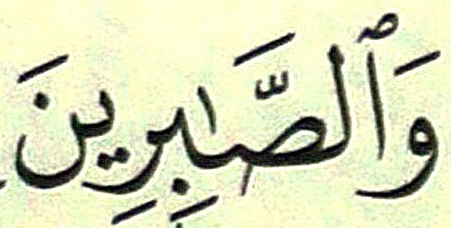 وَٱلصَّـٰبِرِينَ